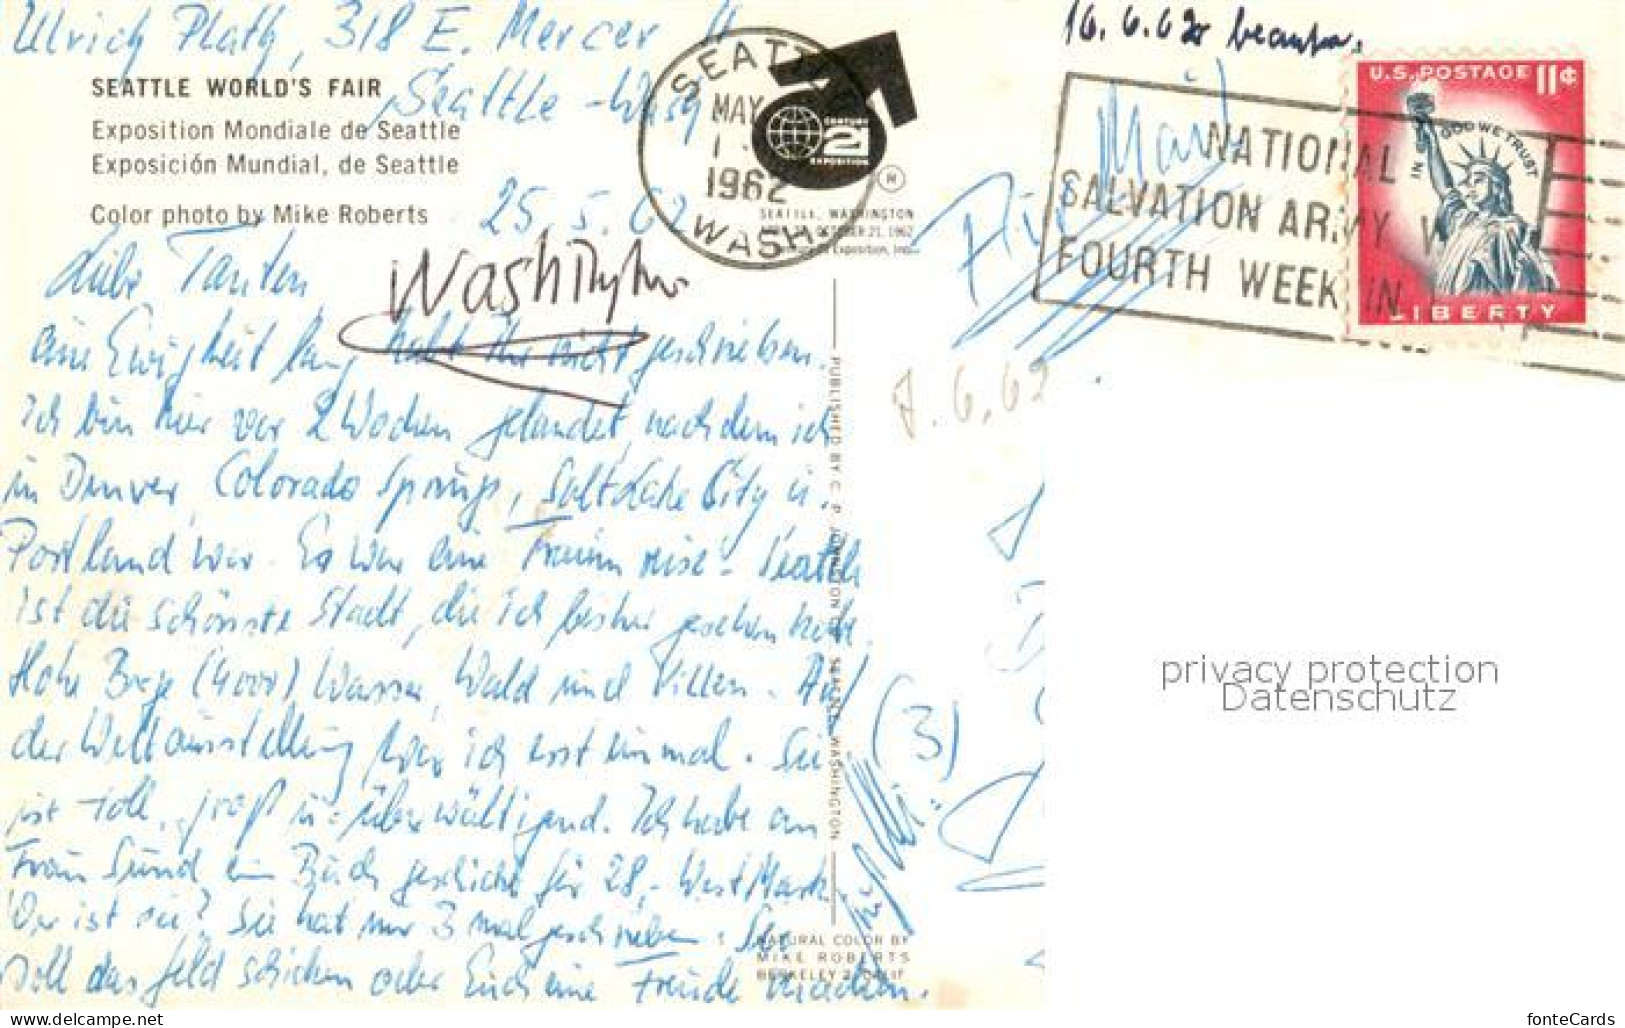 Ulrich Plath, 318 E. Mercer St
Seattle - Wash
SEATTLE WORLD'S FAIR
Exposition Mondiale de Seattle
Exposición Mundial, de Seattle
Color photo by Mike Roberts
25. 5. 62
Liebe Tanten,
eine Ewigkeit lang habt Ihr nicht geschrieben.
Ich bin hier vor 2 Wochen gelandet, nachdem ich
in Denver, Colorado Springs, Salt Lake City u.
Portland war. Es war eine Traumreise! Seattle
ist die schönste Stadt, die ich bisher gesehen habe.
Hohe Berge (4000), Wasser, Wald und Villen. Auf
der Weltausstellung war ich erst einmal. Sie
ist toll, groß u. überwältigend. Ich habe an
Frau Sund ein Buch geschickt für 28,- WestMark.
Wer ist sie? Sie hat nur 3 mal geschrieben. Sie
soll das Geld schicken oder Euch eine Freude machen.
Washington
SEATTLE
MAY
1962
WASH.
CENTURY
21
EXPOSITION
®
SEATTLE, WASHINGTON
OCTOBER 21, 1962
Exposition, Inc.
PUBLISHED BY C. P. JOHNSTON CO., SEATTLE, WASHINGTON
NATURAL COLOR BY
MIKE ROBERTS
BERKELEY 2, CALIF
16. 6. 62
Air Mail
NATIONAL
SALVATION ARMY W
FOURTH WEEK IN
U.S. POSTAGE 11¢
IN GOD WE TRUST
LIBERTY
7. 6. 62
(3)
privacy protection
Datenschutz
www.delcampe.net
fonteCards